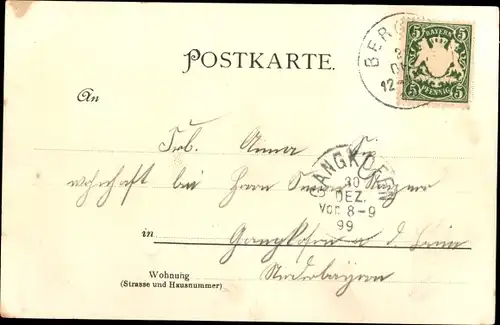 POSTKARTE.
BERG
BAYERN
5 5
PFENNIG
5 5
12-
An
Frl. Anna
wohnhaft bei Herrn
GANGKOFEN
30
DEZ.
Vor. 8-9
99
in Gangkofen a d Bina
Niederbayern
Wohnung
(Strasse und Hausnummer)